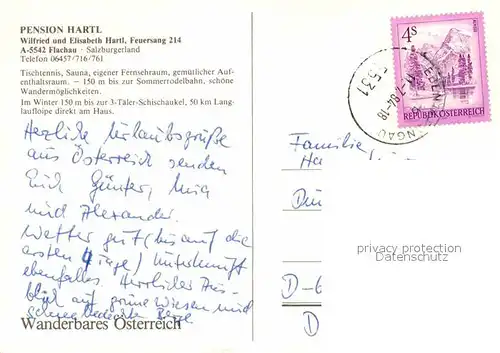 PENSION HARTL
Wilfried und Elisabeth Hartl, Feuersang 214
A-5542 Flachau · Salzburgerland
Telefon 06457/716/761
Tischtennis, Sauna, eigener Fernsehraum, gemütlicher Auf-
enthaltsraum. — 150 m bis zur Sommerrodelbahn, schöne
Wandermöglichkeiten.
Im Winter 150 m bis zur 3-Täler-Schischaukel, 50 km Lang-
laufloipe direkt am Haus.
Herzliche Urlaubsgrüße
aus Österreich senden
Euch Günter,
und Alexander.
Wetter gut (bis auf die
ersten 4 Tage) Unterkunft
ebenfalls. Herrlicher Aus-
blick auf grüne Wiesen und
schneebedeckte Berge.
Wanderbares Österreich
4S
REPUBLIK ÖSTERREICH
5531
Familie
D-6
D
privacy protection
Datenschutz